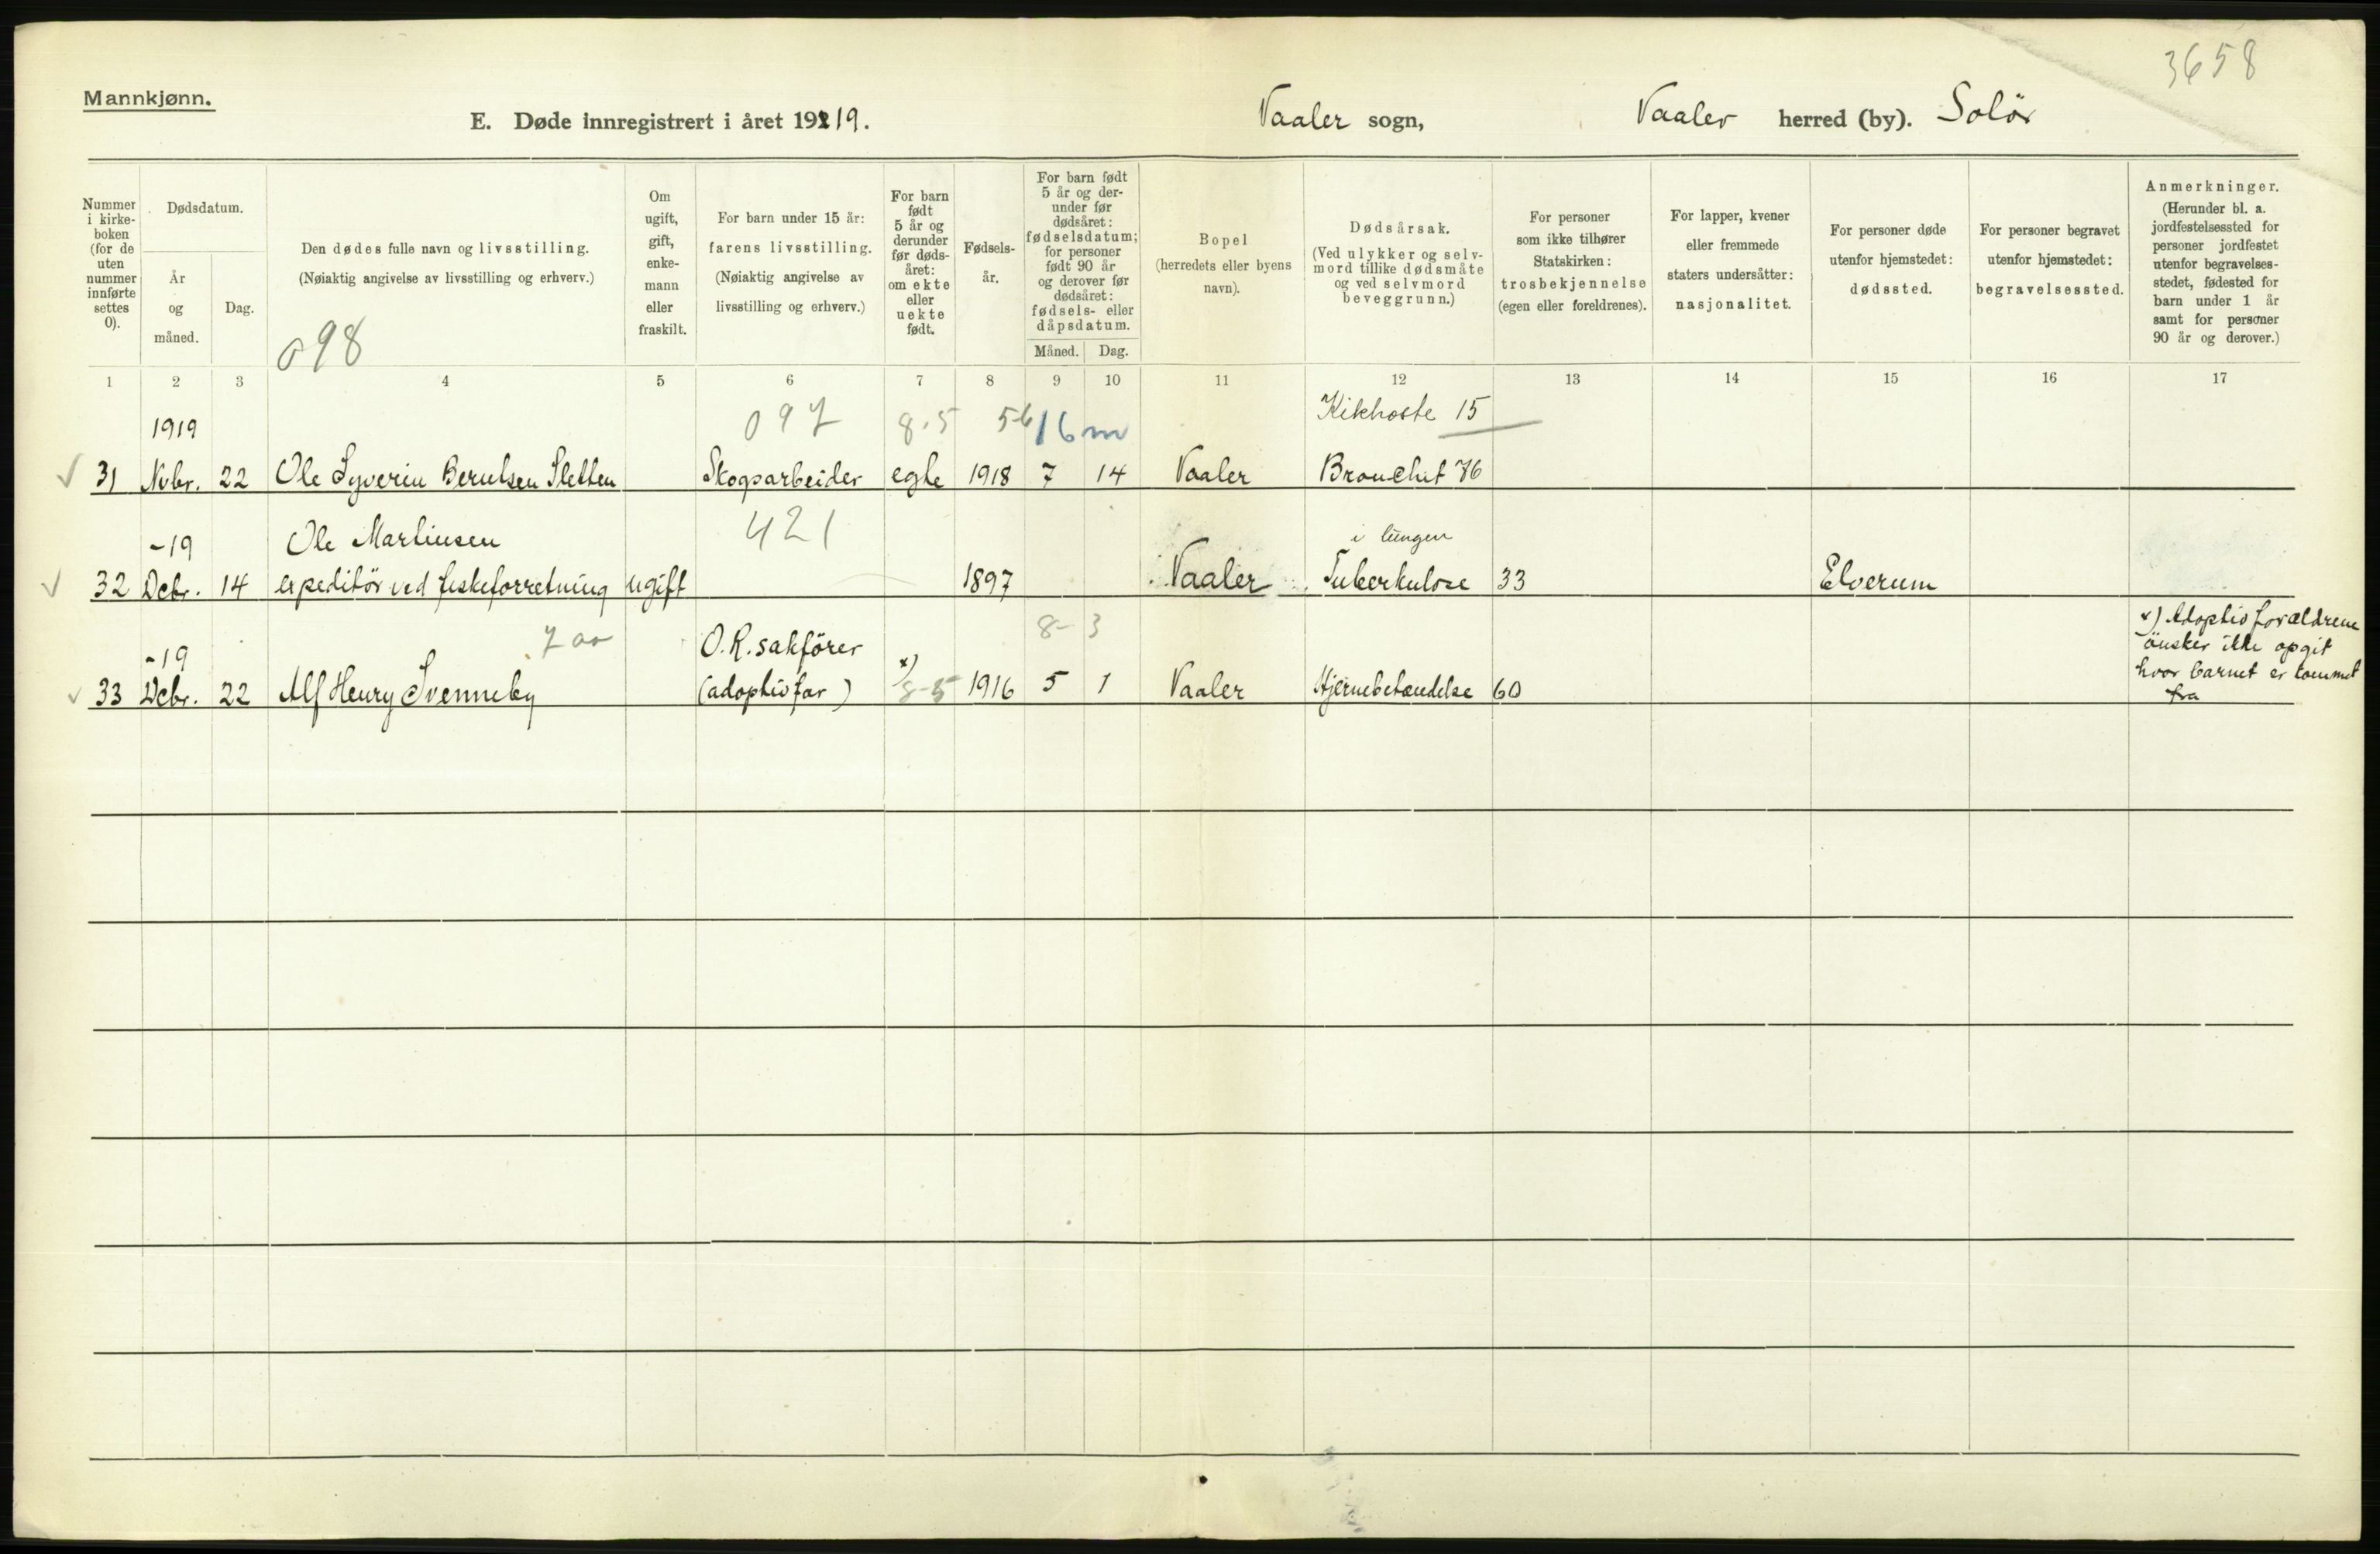 3658
Mannkjønn.
E. Døde innregistrert i året 19219. Vaaler sogn, Vaaler herred (by). Solör
Nummer i kirke-boken (for de uten nummer innførte settes 0).
Dødsdatum.
År og måned.
Dag.
Den dødes fulle navn og livsstilling.
(Nøiaktig angivelse av livsstilling og erhverv.)
098
Om ugift, gift, enke-mann eller fraskilt.
For barn under 15 år:
farens livsstilling.
(Nøiaktig angivelse av livsstilling og erhverv.)
For barn født 5 år og derunder før døds-året: om ekte eller uekte født.
Fødsels-år.
For barn født 5 år og der-under før dødsåret: fødselsdatum; for personer født 90 år og derover før dødsåret: fødsels- eller dåpsdatum.
Måned. Dag.
Bopel
(herredets eller byens navn).
Dødsårsak.
(Ved ulykker og selv-mord tillike dødsmåte og ved selvmord beveggrunn.)
For personer som ikke tilhører Statskirken:
trosbekjennelse
(egen eller foreldrenes).
For lapper, kvener eller fremmede staters undersåtter:
nasjonalitet.
For personer døde utenfor hjemstedet:
dødssted.
For personer begravet utenfor hjemstedet:
begravelsessted.
Anmerkninger.
(Herunder bl. a. jordfestelsessted for personer jordfestet utenfor begravelses-stedet, fødested for barn under 1 år samt for personer 90 år og derover.)
1 2 3 4 5 6 7 8 9 10 11 12 13 14 15 16 17
1919 097 8.5 56 16 m Kikhoste 15
31 Nvbr. 22 Ole Syverin Berntsen Sletten Skogsarbeider egte 1918 7 14 Vaaler Bronchit 76
-19 Ole Martinsen 421 i lungen
32 Dcbr. 14 expeditör ved fiskeforretning ugift 1897 Vaaler Tuberkulose 33 Elverum
-19 O.R.sakförer 8- 3
33 Dcbr. 22 Alf Henry Svenneby (adoptivfar) x) 8-5 1916 5 1 Vaaler Hjernebetændelse 60
x) Adoptivforældrene
önsker ikke opgit
hvor barnet er kommet
fra